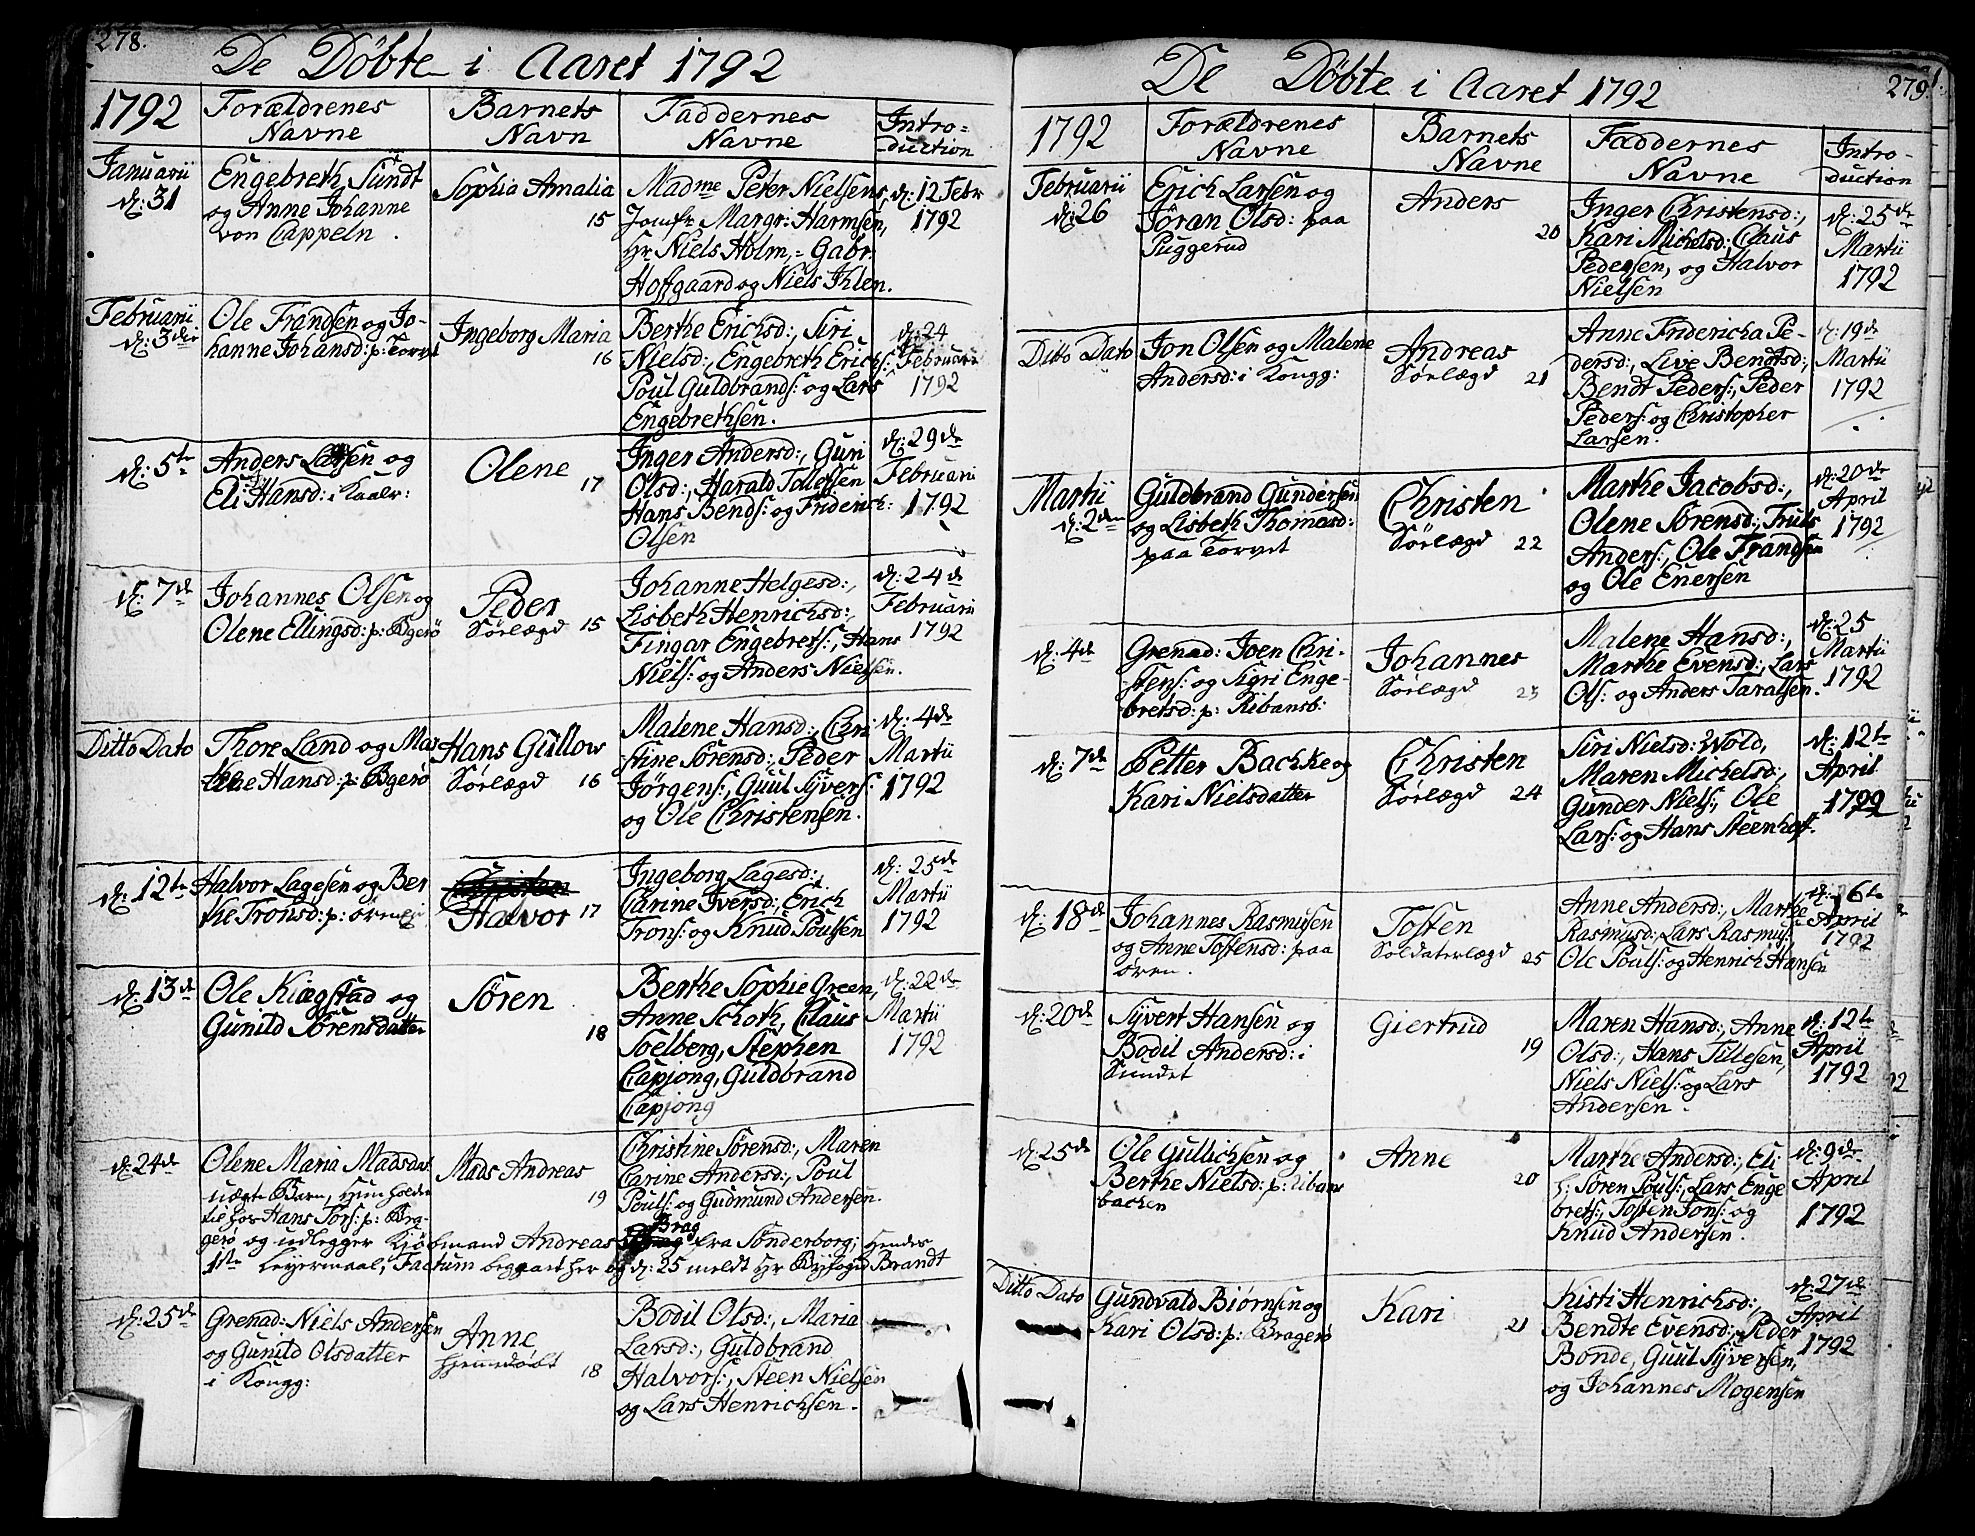 278.
De Döbte i Aaret 1792
1792
Forældrenes
Navne
Barnets
Navn
Faddernes
Navne
Intro=
duction
Januarii
d: 31
Engebreth Sundt
og Anne Johanne
von Cappeln .
Sophia Amalia
15
Madme Peter Nielsens,
Jomfr. Margr: Harmsen,
Hr. Niels Holm, = Gabr.
Hoffgaard og Niels Ihlen.
d: 12 Febr
1792
Februarii
d: 3die
Ole Frandsen og Jo-
hanne Johansd: p: Torvet
Ingeborg Maria
16
Berthe Erichsd:, Siri
Nielsd:, Engebreth Erichs:
Poul Guldbrands: og Lars
Engebrethsen.
d: 24
Februarii
1792
d: 5te
Anders Larsen og
Eli Hansd: i Kaalr:
Olene
17
Inger Andersd:, Guri
Olsd:, Harald Tollefsen
Hans Bends: og Friderich:
Olsen
d: 29de
Februarii
1792
d: 7de
Johannes Olsen og
Olene Ellingsd: p: Bgerö
Peder
Sörlægd 15
Johanne Helgesd:,
Lisbeth Henrichsd:,
Fingar Engebrets:, Hans
Niels: og Anders Nielsen.
d: 24de
Februarii
1792
Ditto Dato
Thore Land og Mar-
the Hansd: p: Bgerö
Hans Gullow
Sörlægd 16
Malene Hansd:, Chri-
stine Sörensd:, Peder
Jörgens:, Guul Syvers:
og Ole Christensen.
d: 4de
Martii
1792
d: 12te
Halvor Lagesen og Ber
the Tronsd: p: örnen
Christen
Halvor 17
Ingeborg Lagesd:,
Carine Iversd:, Erich
Trons: og Knud Poulsen
d: 25de
Martii
1792
d: 13de
Ole Kiægstad og
Gunild Sörensdatter
Sören
18
Berthe Sophie Green,
Anne Schoth, Claus
Soelberg, Stephen
Capjong, Guldbrand
Capjong
d: 22de
Martii
1792
d: 24de
Olene Maria Madsdat
uægte Barn, hun holder
til hos Hans Tors: p: Brg-
gerö og udlegger Kjöbmand Andreas Brag fra Sönderborg; hendes
1ste Leyermaal, Factum begaaet her og d: 25 meldt Hr Byfoged Brandt
Mads Andreas
19
Christine Sörensd:, Maren
Carine Andersd:, Poul
Pouls: og Gudmund Andersen.
d: 25de
Grenad: Niels Andersen
og Gunild Olsdatter
i Kongg:
Anne
hjemdöbt 18
Bodil Olsd:, Maria
Larsd:, Guldbrand
Halvors:, Steen Nielsen
og Lars Henrichsen.
279.
De Döbte i Aaret 1792
1792
Forældrenes
Navne
Barnets
Navne
Faddernes
Navne
Intro-
duction
Februarii
d: 26
Erich Larsen og
Jöran Olsd: paa
Puggerud
Anders
20
Inger Christensd:,
Kari Michelsd:, Claus
Pedersen, og Halvor
Nielsen
d: 25de
Martii
1792
Ditto Dato
Jon Olsen og Malene
Andersd: i Kongg:
Andreas
Sörlægd 21
Anne Fridericha Pe-
dersd:, Live Bendtsd:,
Bendt Peders:, Peder
Peders: og Christopher
Larsen.
d: 19de
Martii
1792
Martii
d: 2den
Guldbrand Gundersen
og Lisbeth Thomasd:
paa Torvet
Christen
Sörlægd 22
Marthe Jacobsd:,
Olene Sörensd:, Truls
Anders:, Ole Frandsen
og Ole Enersen
d: 20de
April
1792
d: 4de
Grenad: Joen Chri-
stens: og Sigri Enge-
bretsd: p: Ribansb:
Johannes
Sörlægd 23
Malene Hansd:,
Marthe Evensd:, Lars
Ols: og Anders Taralsen.
d: 25
Martii
1792
d: 7de
Petter Bachke og
Kari Nielsdatter
Christen
Sörlægd 24
Siri Nielsd: Wold,
Maren Michelsd:,
Gunder Niels:, Ole
Lars: og Hans Steenhoff.
d: 12te
April
1792
d: 18de
Johannes Rasmusen
og Anne Tostensd: paa
ören.
Tosten
Soldaterlægd 25
Anne Andersd:, Marthe
Rasmusd:, Lars Rasmus:
Ole Pouls: og Henrich Hansen
d: 16te
April
1792
d: 20de
Syvert Hansen og
Bodil Andersd: i
Sundet
Giertrud
19
Maren Hansd:, Anne
Olsd:, Hans Tillesen,
Niels Niels: og Lars
Andersen.
d: 12te
April
1792
d: 25de
Ole Gullichsen og
Berthe Nielsd: p: Ribans
bachen
Anne
20
Marthe Andersd:, Eli
S: Sören Pouls:, Lars Enge
brets:, Tosten Jons: og
Knud Andersen.
d: 9de
April
1792
Ditto Dato
Gundvald Biörnsen og
Kari Olsd: p: Bragerö
Kari
21
Kisti Henrichsd:,
Bendte Evensd:, Peder
Bonde, Guul Syversen,
og Johannes Mogensen
d: 27de
April
1792